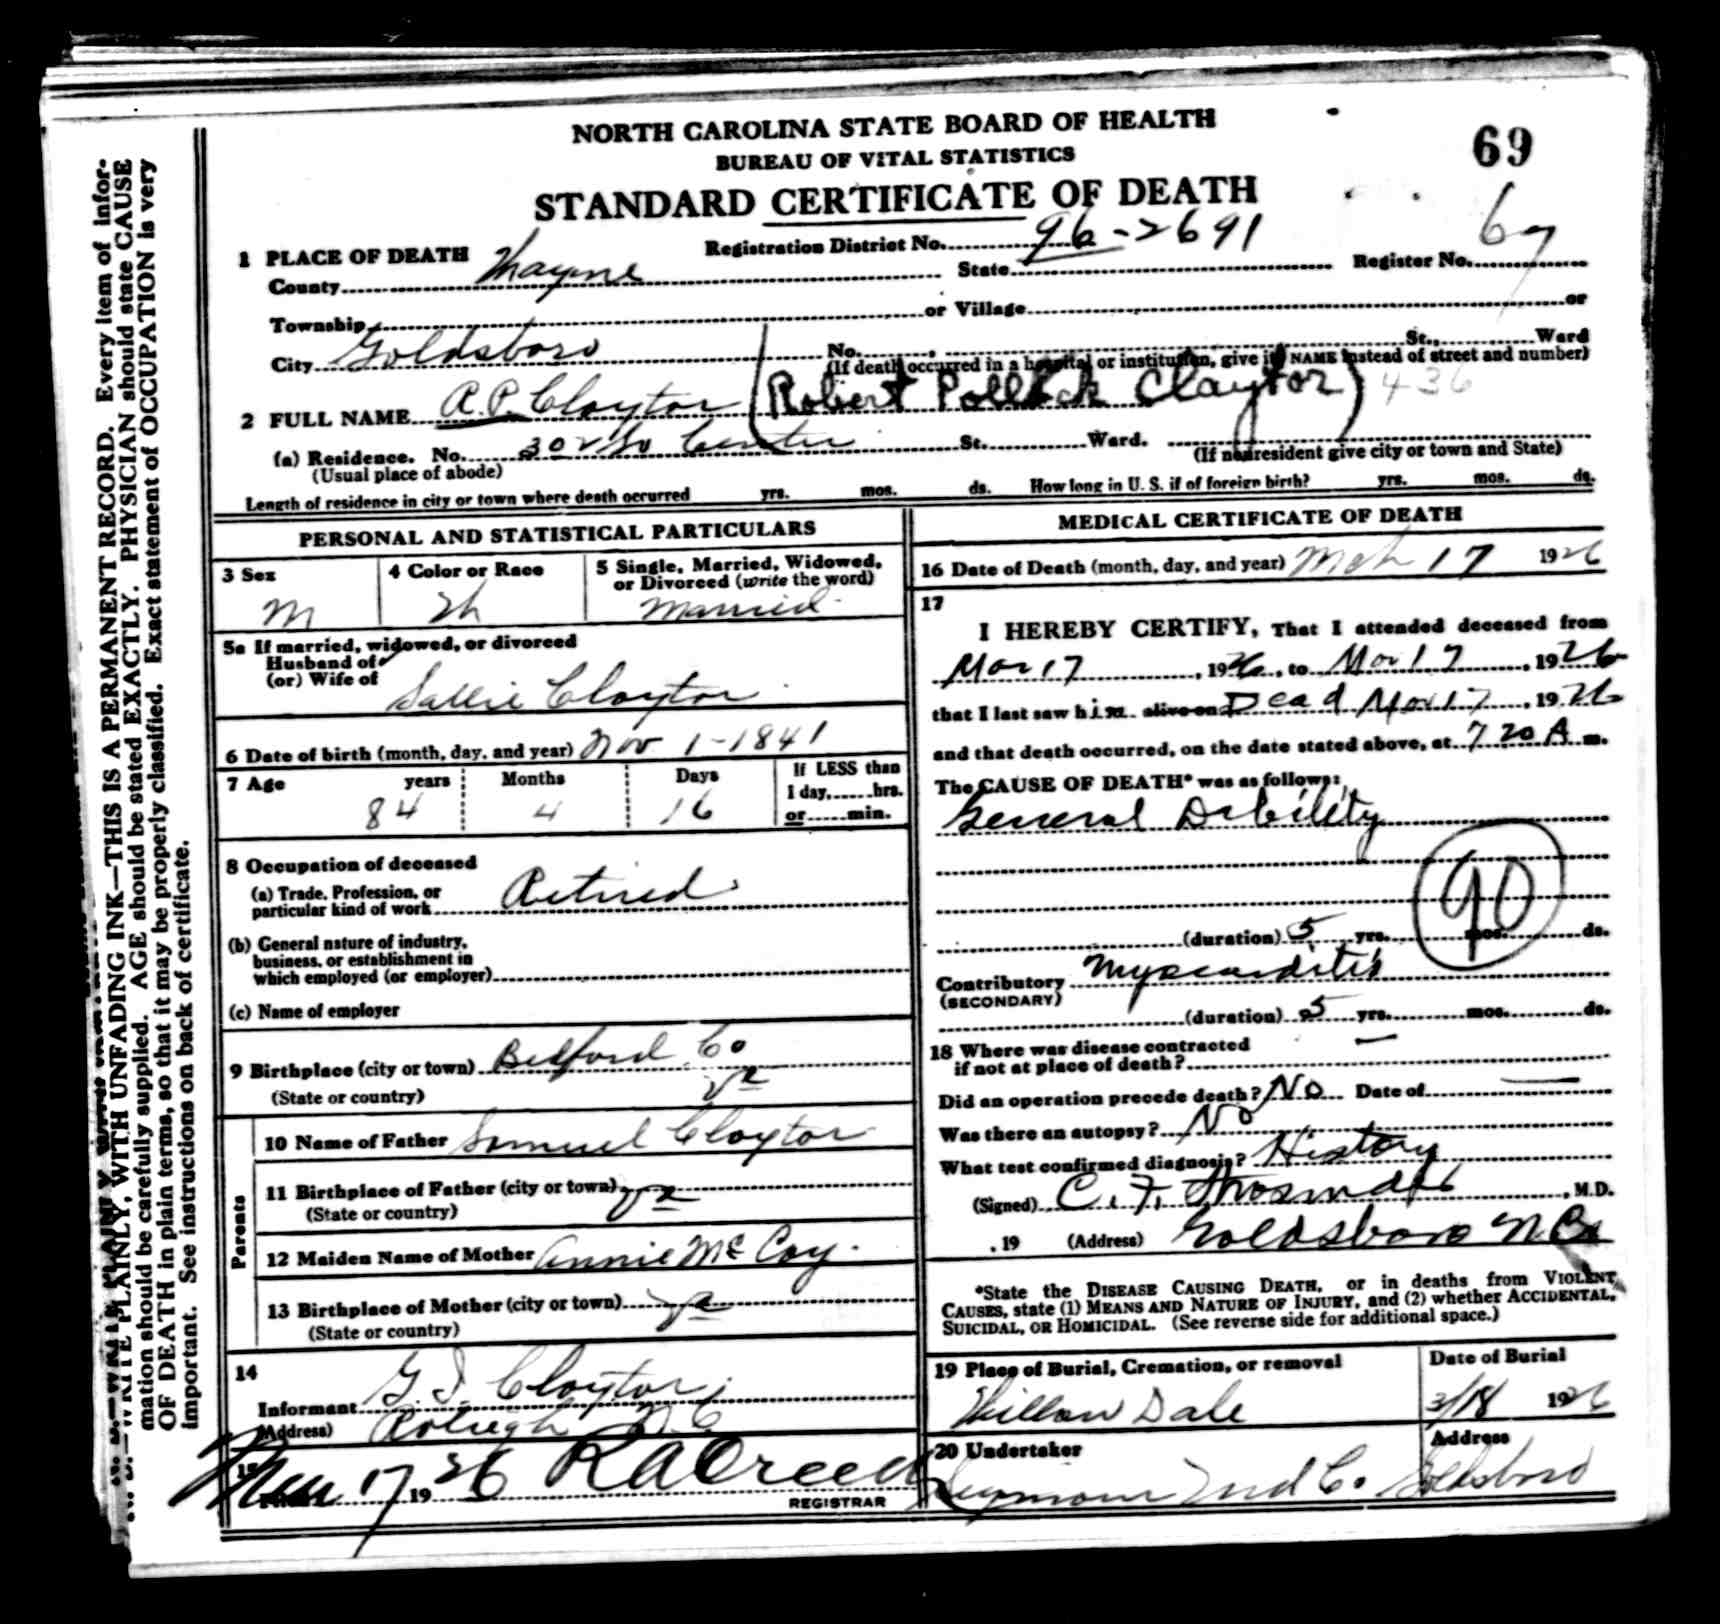 NORTH CAROLINA STATE BOARD OF HEALTH
BUREAU OF VITAL STATISTICS
STANDARD CERTIFICATE OF DEATH
69
Registration District No. 96-2691
Register No. 67
1 PLACE OF DEATH
County Wayne State
Township or Village or
City Goldsboro No. St., Ward
(If death occurred in a hospital or institution, give its NAME instead of street and number)
2 FULL NAME R.P. Claytor (Robert Pollock Claytor) 436
(a) Residence. No. 302 So Center St. Ward.
(Usual place of abode) (If nonresident give city or town and State)
Length of residence in city or town where death occurred yrs. mos. ds. How long in U. S. if of foreign birth? yrs. mos. ds.
PERSONAL AND STATISTICAL PARTICULARS
3 Sex
M
4 Color or Race
Wh
5 Single, Married, Widowed, or Divorced (write the word)
Married
5a If married, widowed, or divorced
Husband of
(or) Wife of Sallie Claytor
6 Date of birth (month, day, and year) Nov 1-1841
7 Age years Months Days If LESS than
84 4 16 1 day,......hrs.
or......min.
8 Occupation of deceased
(a) Trade, Profession, or
particular kind of work Retired
(b) General nature of industry,
business, or establishment in
which employed (or employer)
(c) Name of employer
9 Birthplace (city or town) Bedford Co
(State or country) Va
Parents
10 Name of Father Samuel Claytor
11 Birthplace of Father (city or town) Va
(State or country)
12 Maiden Name of Mother Annie McCoy
13 Birthplace of Mother (city or town) Va
(State or country)
14
Informant G. I. Claytor
(Address) Raleigh N.C.
15
17 1926 R A Creech
REGISTRAR
MEDICAL CERTIFICATE OF DEATH
16 Date of Death (month, day, and year) Mch 17 1926
17
I HEREBY CERTIFY, That I attended deceased from
Mar 17, 1926, to Mar 17, 1926
that I last saw him alive on Dead Mar 17, 1926
and that death occurred, on the date stated above, at 7 20 A m.
The CAUSE OF DEATH* was as follows:
General Debility
90
(duration) 5 yrs. mos. ds.
Contributory Myocarditis
(SECONDARY)
(duration) 5 yrs. mos. ds.
18 Where was disease contracted
if not at place of death? —
Did an operation precede death? No Date of —
Was there an autopsy? No
What test confirmed diagnosis? History
(Signed) C. F. , M.D.
, 19 (Address) Goldsboro N.C.
*State the DISEASE CAUSING DEATH, or in deaths from VIOLENT
CAUSES, state (1) MEANS AND NATURE OF INJURY, and (2) whether ACCIDENTAL,
SUICIDAL, OR HOMICIDAL. (See reverse side for additional space.)
19 Place of Burial, Cremation, or removal
Willow Dale
Date of Burial
3/18 1926
20 Undertaker
Seymour Und Co.
Address
Goldsboro
WRITE PLAINLY, WITH UNFADING INK—THIS IS A PERMANENT RECORD. Every item of infor-
mation should be carefully supplied. AGE should be stated EXACTLY. PHYSICIAN should state CAUSE
OF DEATH in plain terms, so that it may be properly classified. Exact statement of OCCUPATION is very
important. See instructions on back of certificate.